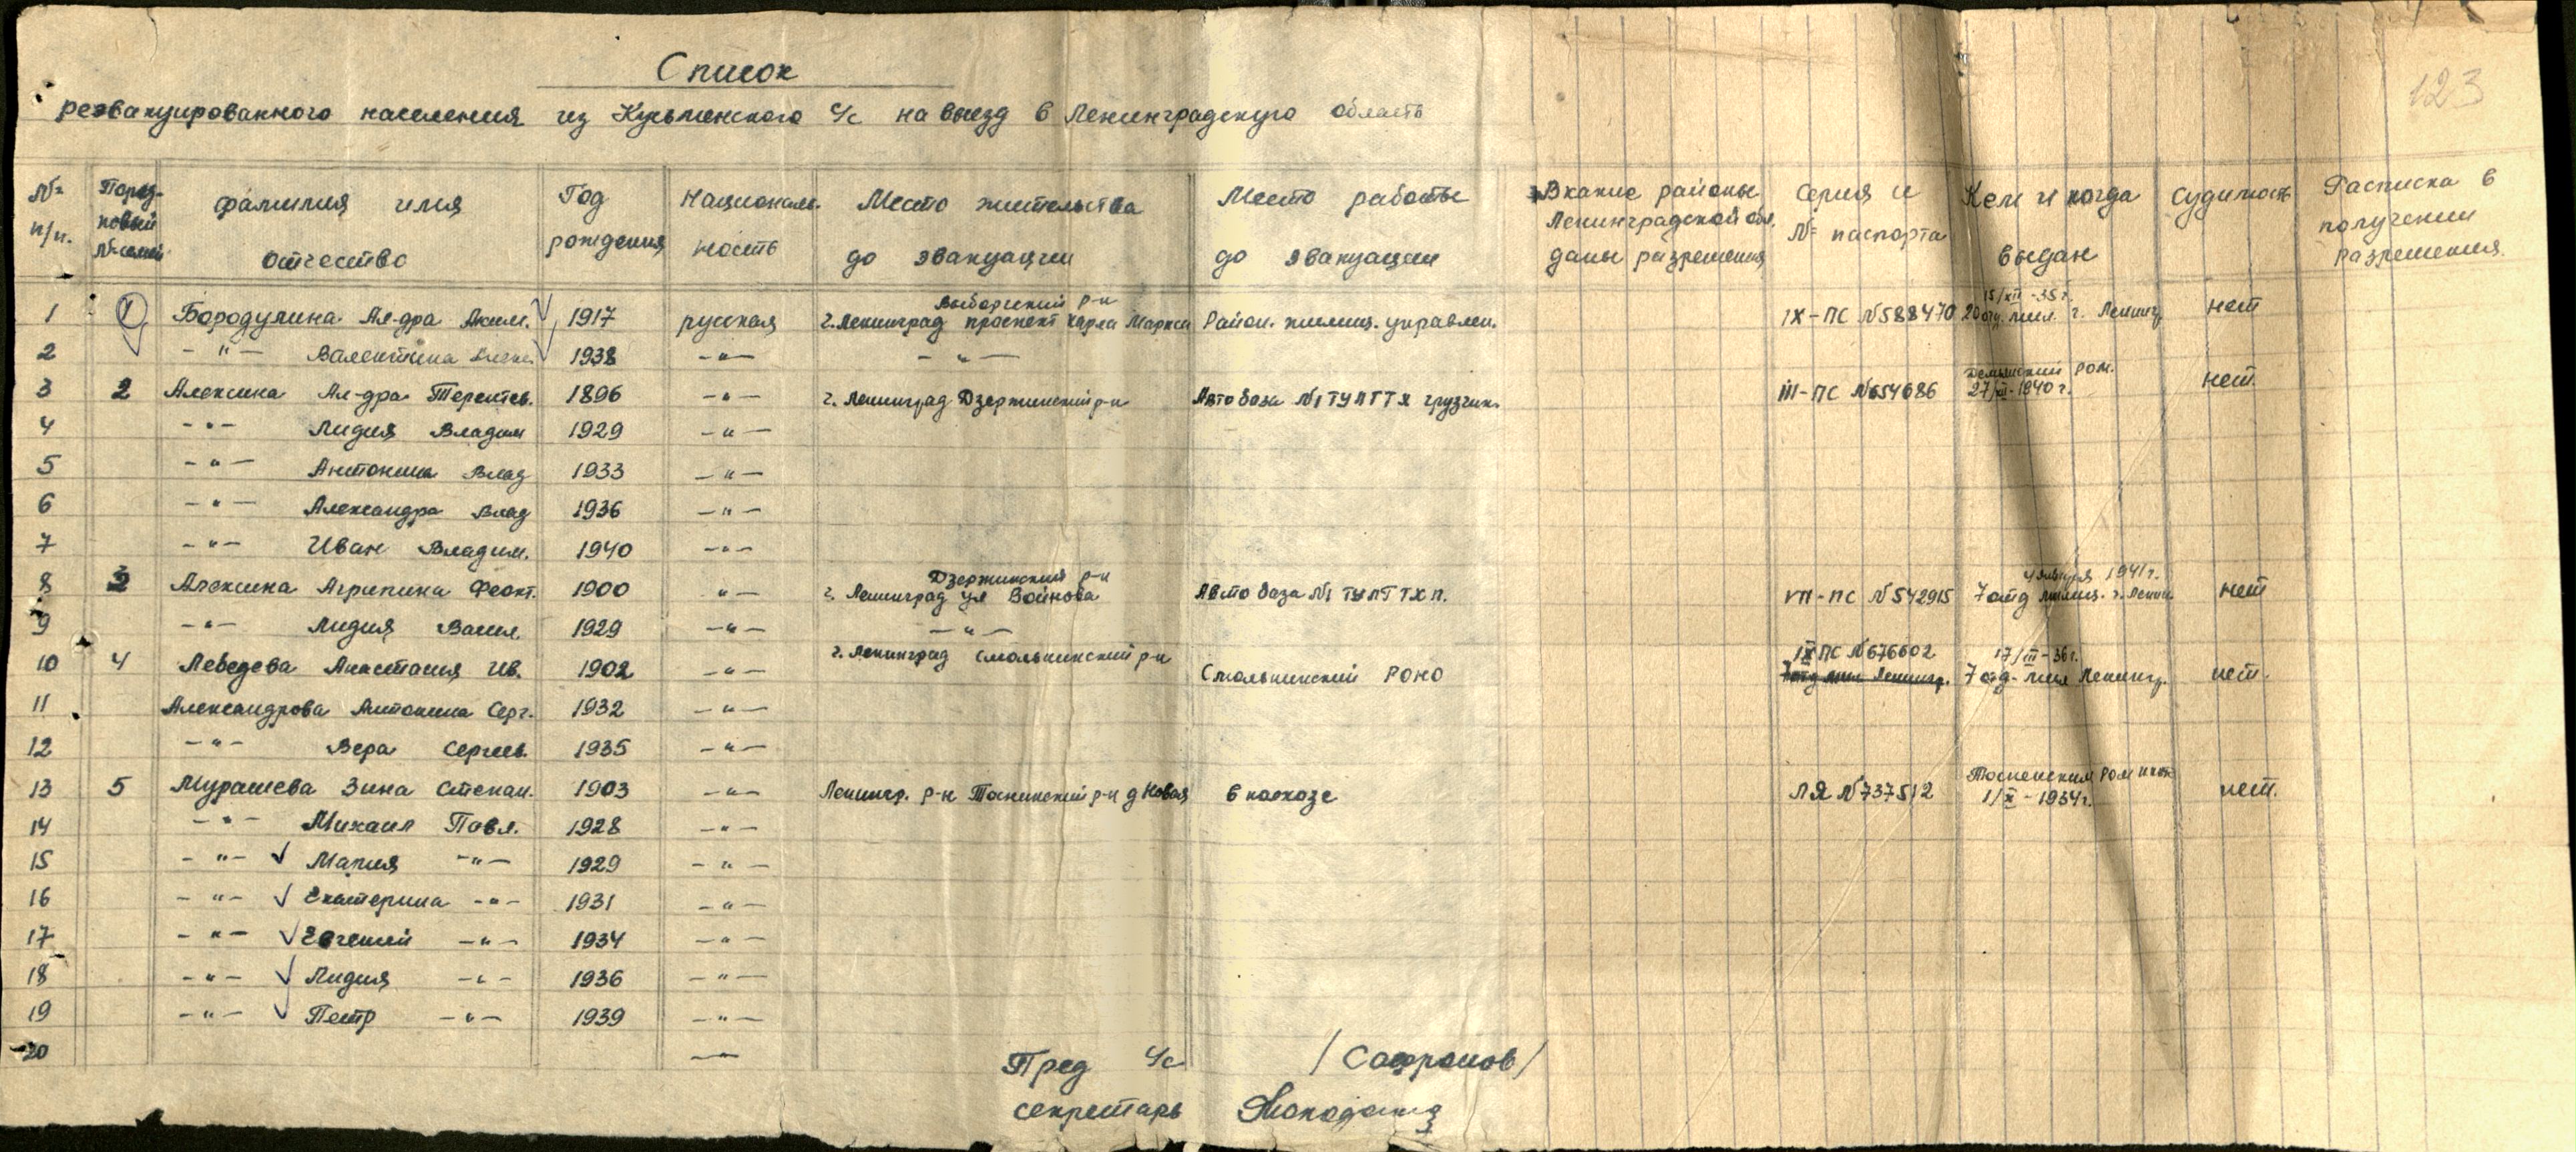 123
Список
реэвакуированного населения из Кузьминского с/с на выезд в Ленинградскую область
№ п/п. Поряд-ковый № семьи фамилия имя отчество Год рождения Националь-ность Место жительства до эвакуации Место работы до эвакуации В какие районы Ленинградской обл. даны разрешения Серия и № паспорта Кем и когда выдан Судимость Расписка в получении разрешения.
1 1 Бородулина Ал-дра Аким. 1917 русская Выборгский р-н г. Ленинград проспект Карла Маркса Район. жилищ. управлен. IX-ПС №588470 15/XII-35г. 20 отд. мил. г. Ленинг. нет
2 -"- Валентина 1938 -"- -"-
3 2 Алексина Ал-дра Терентев. 1896 -"- г. Ленинград Дзержинский р-н Автобаза №1 ТУЛГТХ грузчик. III-ПС №654686 РОМ. 27/III-1940г. нет.
4 -"- Лидия Владим 1929 -"-
5 -"- Антонина Влад 1933 -"-
6 -"- Александра Влад 1936 -"-
7 -"- Иван Владим. 1940 -"-
8 3 Алексина Агрипина Феокт. 1900 -"- Дзержинский р-н г. Ленинград ул Войнова Авто база №1 ТУЛГТХ п. VII-ПС №542915 4 января 1941г. 7 отд милиц. г. Ленин. нет
9 -"- Лидия Васил. 1929 -"- -"-
10 4 Лебедева Анастасия Ив. 1902 -"- г. Ленинград Смольнинский р-н Смольнинский РОНО IX ПС №676602 7 отд мил Ленингр. 17/III-36г. 7 отд-мил Ленинг. нет.
11 Александрова Антонина Серг. 1932 -"-
12 -"- Вера Сергеев. 1935 -"-
13 5 Мурашева Зина Степан. 1903 -"- Ленингр. р-н Тоснинский р-н д Новая в колхозе ЛЯ №737512 Тосненским РОМ НКВД 1/X-1934г. нет.
14 -"- Михаил Павл. 1928 -"-
15 -"- Мария -"- 1929 -"-
16 -"- Екатерина -"- 1931 -"-
17 -"- Евгений -"- 1934 -"-
18 -"- Лидия -"- 1936 -"-
19 -"- Петр -"- 1939 -"-
20 -"-
Пред с/с /Сафронов/
секретарь